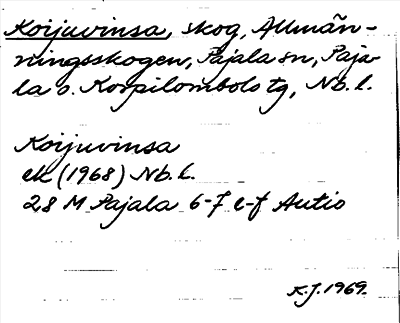 Koijuvinsa, skog, Allmän-
ningsskogen, Pajala sn, Paja-
la o. Korpilombolo tg, Nb. l.
Koijuvinsa
ek (1968) Nb. l.
28 M Pajala 6-7 e-f Autio
K.J. 1969.